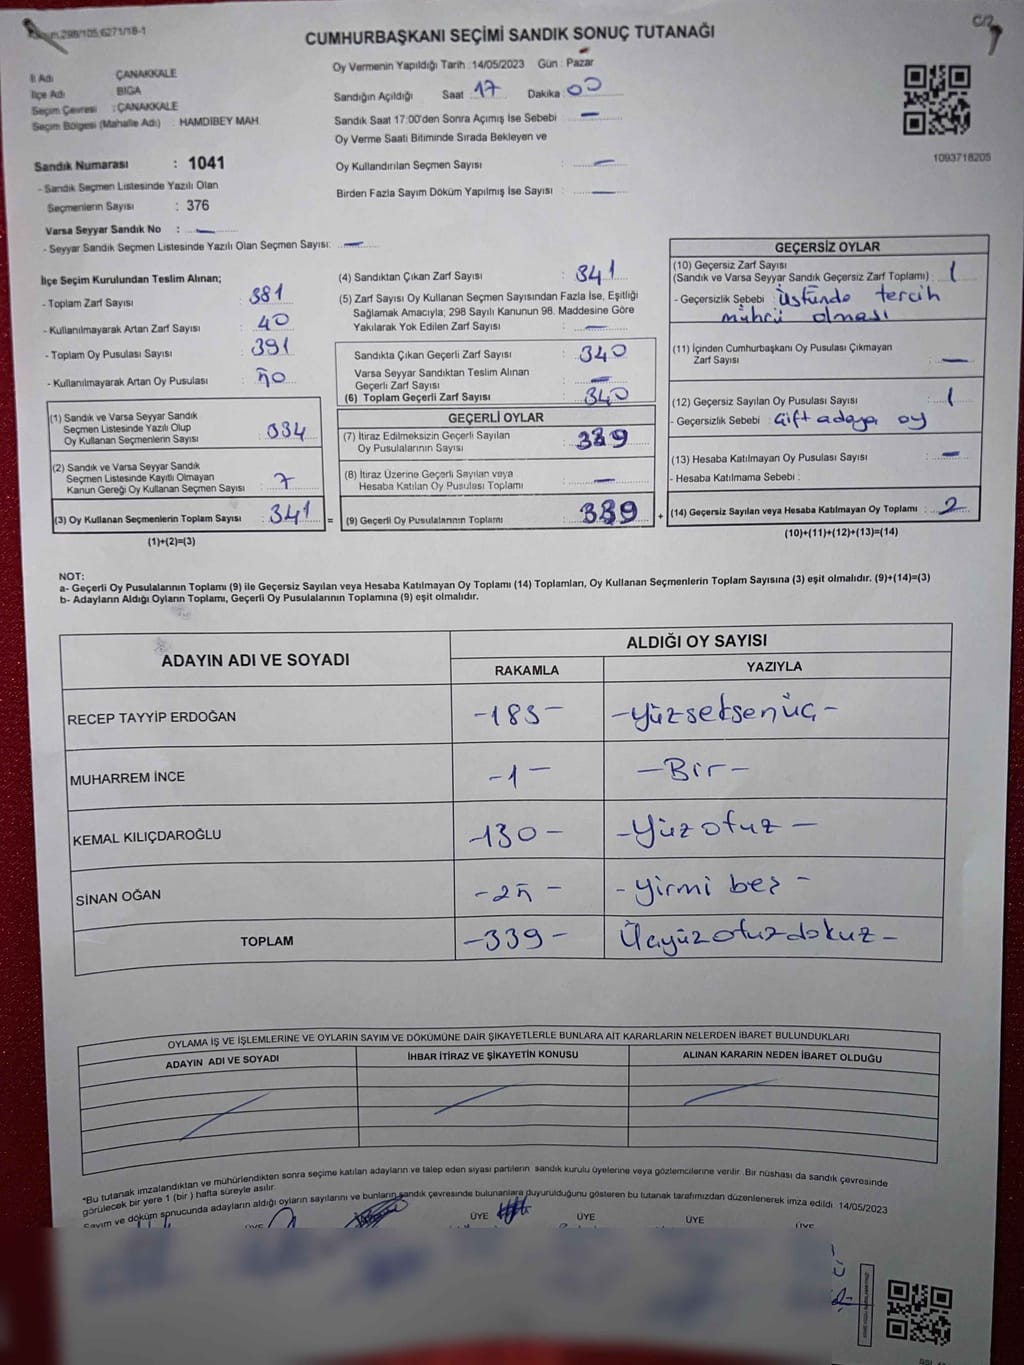 298/105;6271/18-1
C/2
CUMHURBAŞKANI SEÇİMİ SANDIK SONUÇ TUTANAĞI
İl Adı ÇANAKKALE
İlçe Adı BİGA
Seçim Çevresi : ÇANAKKALE
Seçim Bölgesi (Mahalle Adı) : HAMDIBEY MAH.
Oy Vermenin Yapıldığı Tarih :14/05/2023 Gün : Pazar
Sandığın Açıldığı Saat 17 Dakika 00
Sandık Saat 17:00'den Sonra Açımış İse Sebebi : —
Oy Verme Saati Bitiminde Sırada Bekleyen ve
Oy Kullandırılan Seçmen Sayısı : —
Birden Fazla Sayım Döküm Yapılmış İse Sayısı : —
1093718205
Sandık Numarası : 1041
- Sandık Seçmen Listesinde Yazılı Olan
Seçmenlerin Sayısı : 376
Varsa Seyyar Sandık No : —
- Seyyar Sandık Seçmen Listesinde Yazılı Olan Seçmen Sayısı: —
İlçe Seçim Kurulundan Teslim Alınan;
- Toplam Zarf Sayısı : 381
- Kullanılmayarak Artan Zarf Sayısı : 40
- Toplam Oy Pusulası Sayısı : 391
- Kullanılmayarak Artan Oy Pusulası : 50
(1) Sandık ve Varsa Seyyar Sandık
Seçmen Listesinde Yazılı Olup
Oy Kullanan Seçmenlerin Sayısı : 334
(2) Sandık ve Varsa Seyyar Sandık
Seçmen Listesinde Kayıtlı Olmayan
Kanun Gereği Oy Kullanan Seçmen Sayısı : 7
(3) Oy Kullanan Seçmenlerin Toplam Sayısı : 341 =
(1)+(2)=(3)
(4) Sandıktan Çıkan Zarf Sayısı : 341
(5) Zarf Sayısı Oy Kullanan Seçmen Sayısından Fazla İse, Eşitliği
Sağlamak Amacıyla; 298 Sayılı Kanunun 98. Maddesine Göre
Yakılarak Yok Edilen Zarf Sayısı : —
Sandıkta Çıkan Geçerli Zarf Sayısı : 340
Varsa Seyyar Sandıktan Teslim Alınan
Geçerli Zarf Sayısı : —
(6) Toplam Geçerli Zarf Sayısı : 340
GEÇERLİ OYLAR
(7) İtiraz Edilmeksizin Geçerli Sayılan
Oy Pusulalarının Sayısı : 339
(8) İtiraz Üzerine Geçerli Sayılan veya
Hesaba Katılan Oy Pusulası Toplamı : —
(9) Geçerli Oy Pusulalarının Toplamı : 339 +
GEÇERSİZ OYLAR
(10) Geçersiz Zarf Sayısı
(Sandık ve Varsa Seyyar Sandık Geçersiz Zarf Toplamı) : 1
- Geçersizlik Sebebi : Üstünde tercih
mührü olması
(11) İçinden Cumhurbaşkanı Oy Pusulası Çıkmayan
Zarf Sayısı : —
(12) Geçersiz Sayılan Oy Pusulası Sayısı : 1
- Geçersizlik Sebebi : Çift adaya oy
(13) Hesaba Katılmayan Oy Pusulası Sayısı : —
- Hesaba Katılmama Sebebi :
(14) Geçersiz Sayılan veya Hesaba Katılmayan Oy Toplamı : 2
(10)+(11)+(12)+(13)=(14)
NOT:
a- Geçerli Oy Pusulalarının Toplamı (9) ile Geçersiz Sayılan veya Hesaba Katılmayan Oy Toplamı (14) Toplamları, Oy Kullanan Seçmenlerin Toplam Sayısına (3) eşit olmalıdır. (9)+(14)=(3)
b- Adayların Aldığı Oyların Toplamı, Geçerli Oy Pusulalarının Toplamına (9) eşit olmalıdır.
ADAYIN ADI VE SOYADI
ALDIĞI OY SAYISI
RAKAMLA YAZIYLA
RECEP TAYYİP ERDOĞAN -183- -Yüzseksenüç-
MUHARREM İNCE -1- -Bir-
KEMAL KILIÇDAROĞLU -130- -Yüzotuz-
SİNAN OĞAN -25- -Yirmi beş-
TOPLAM -339- Üçyüzotuzdokuz-
OYLAMA İŞ VE İŞLEMLERİNE VE OYLARIN SAYIM VE DÖKÜMÜNE DAİR ŞİKAYETLERLE BUNLARA AİT KARARLARIN NELERDEN İBARET BULUNDUKLARI
ADAYIN ADI VE SOYADI İHBAR İTİRAZ VE ŞİKAYETİN KONUSU ALINAN KARARIN NEDEN İBARET OLDUĞU
*Bu tutanak imzalandıktan ve mühürlendikten sonra seçime katılan adayların ve talep eden siyasi partilerin sandık kurulu üyelerine veya gözlemcilerine verilir. Bir nüshası da sandık çevresinde
görülecek bir yere 1 (bir ) hafta süreyle asılır.
Sayım ve döküm sonucunda adayların aldığı oyların sayılarını ve bunların sandık çevresinde bulunanlara duyurulduğunu gösteren bu tutanak tarafımızdan düzenlenerek imza edildi 14/05/2023
ÜYE ÜYE ÜYE ÜYE ÜYE